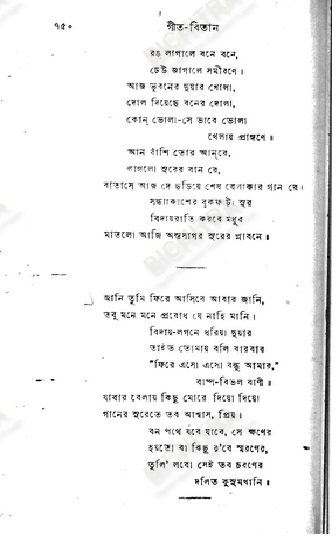 ৭৫০
গীত-বিতান
রঙ লাগালে বনে বনে,
ঢেউ জাগালে সমীরণে।
আজ ভুবনের দুয়ার খোলা,
দোল দিয়েছে বনের দোলা,
কোন্ ভোলা-সে ভাবে ভোলা
খেলায় প্রাঙ্গণে॥
আন বাঁশি তোর আন্‌রে,
লাগলো সুরের বান রে,
বাতাসে আজ দে ছড়িয়ে শেষ বেলাকার গান রে।
সন্ধ্যাকাশের বুকফাটা সুর
বিদায়রাতি করবে মধুর
মাতলো আজি অস্তসাগর সুরের প্লাবনে॥
জানি তুমি ফিরে আসিবে আবার জানি,
তবু মনে মনে প্রবোধ যে নাহি মানি।
বিদায়-লগনে ধরিয়া দুয়ার
তাইত তোমায় বলি বারবার
"ফিরে এসো এসো বন্ধু আমার,"
বাষ্প-বিভল বাণী॥
যাবার বেলায় কিছু মোরে দিয়ো দিয়ো
গানের সুরেতে তব আশ্বাস, প্রিয়।
বন পথে যবে যাবে, সে ক্ষণের
হয়তো বা কিছু র'বে স্মরণের,
তুলি' লবো সেই তব চরণের
দলিত কুসুমখানি॥